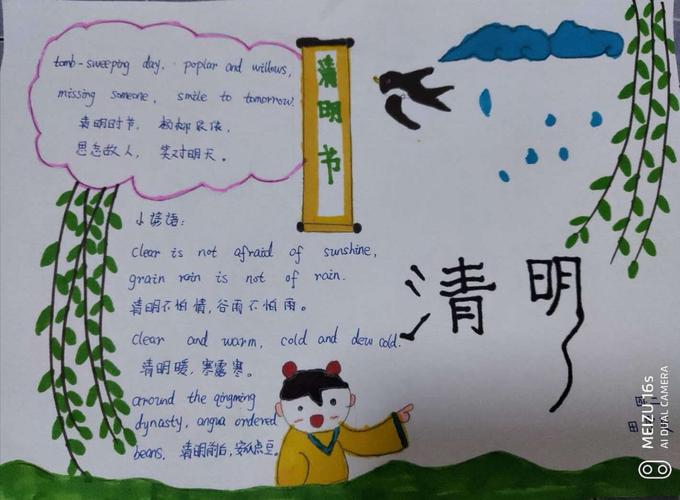 tomb-sweeping day. poplar and willows,
missing someone, smile to tomorrow.
清明时节, 杨柳依依,
思念故人, 笑对明天。
清明节
小谚语:
clear is not afraid of sunshine,
grain rain is not of rain.
清明不怕晴,谷雨不怕雨。
clear and warm, cold and dew cold.
清明暖,寒露寒。
around the qingming
dynasty, angua ordered
beans. 清明前后,安瓜点豆。
清明
MEIZU 16s
AI DUAL CAMERA